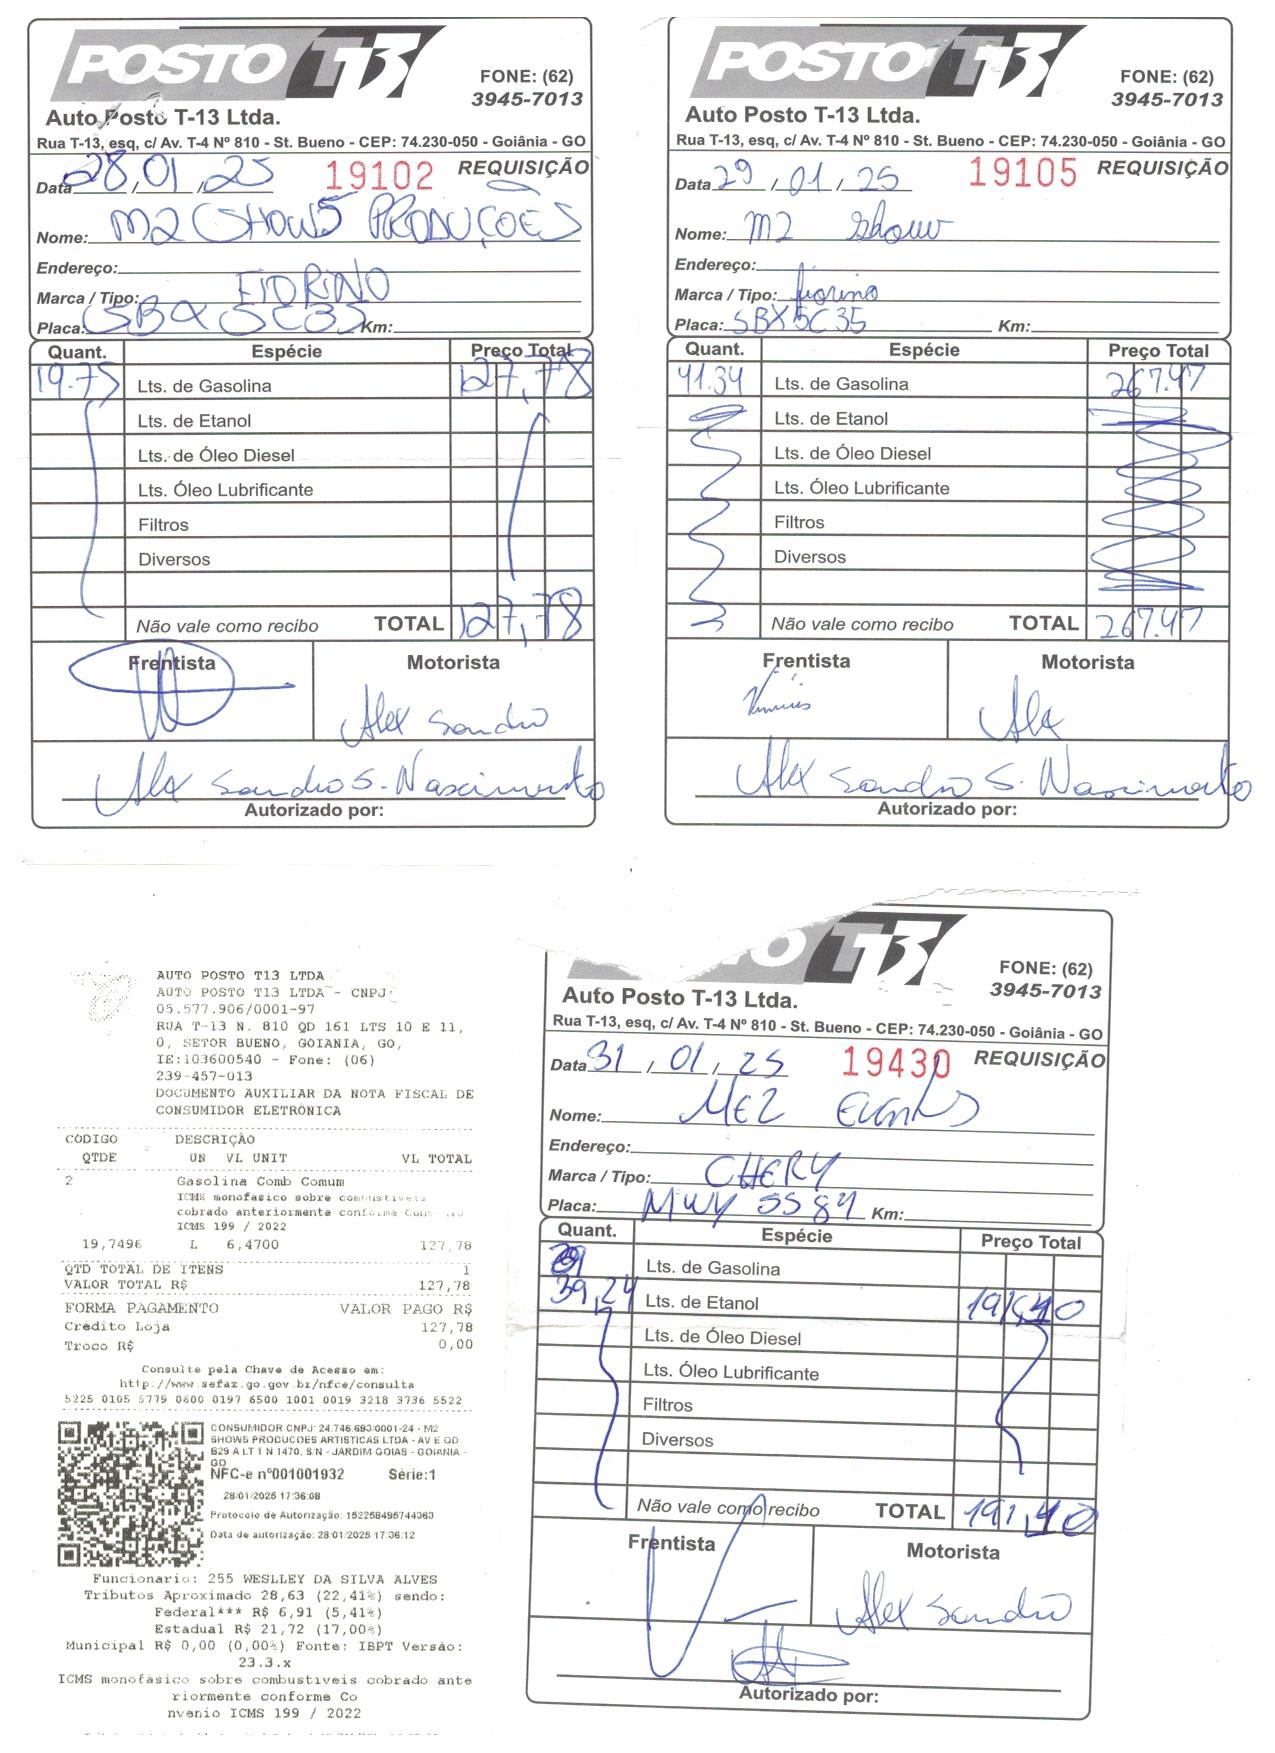 POSTO T13
FONE: (62)
3945-7013
Auto Posto T-13 Ltda.
Rua T-13, esq, c/ Av. T-4 Nº 810 - St. Bueno - CEP: 74.230-050 - Goiânia - GO
Data 28/01/25 19102 REQUISIÇÃO
Nome: M2 SHOWS PRODUÇÕES
Endereço:
Marca / Tipo: FIORINO
Placa: SBX 5C35 Km:
Quant. Espécie Preço Total
19.75 Lts. de Gasolina 127,78
Lts. de Etanol
Lts. de Óleo Diesel
Lts. Óleo Lubrificante
Filtros
Diversos
Não vale como recibo TOTAL 127,78
Frentista Motorista
Alex Sandro
Alex Sandro S. Nascimento
Autorizado por:
POSTO T13
FONE: (62)
3945-7013
Auto Posto T-13 Ltda.
Rua T-13, esq, c/ Av. T-4 Nº 810 - St. Bueno - CEP: 74.230-050 - Goiânia - GO
Data 29/01/25 19105 REQUISIÇÃO
Nome: M2 Show
Endereço:
Marca / Tipo: fiorino
Placa: SBX5C35 Km:
Quant. Espécie Preço Total
41.34 Lts. de Gasolina 267.47
Lts. de Etanol
Lts. de Óleo Diesel
Lts. Óleo Lubrificante
Filtros
Diversos
Não vale como recibo TOTAL 267.47
Frentista Motorista
Vinicius Alex
Alex Sandro S. Nascimento
Autorizado por:
AUTO POSTO T13 LTDA
AUTO POSTO T13 LTDA - CNPJ:
05.577.906/0001-97
RUA T-13 N. 810 QD 161 LTS 10 E 11,
0, SETOR BUENO, GOIANIA, GO,
IE:103600540 - Fone: (06)
239-457-013
DOCUMENTO AUXILIAR DA NOTA FISCAL DE
CONSUMIDOR ELETRÔNICA
CÓDIGO DESCRIÇÃO
QTDE UN VL UNIT VL TOTAL
2 Gasolina Comb Comum
ICMS monofasico sobre combustiveis
cobrado anteriormente conforme
ICMS 199 / 2022
19,7496 L 6,4700 127,78
QTD TOTAL DE ITENS 1
VALOR TOTAL R$ 127,78
FORMA PAGAMENTO VALOR PAGO R$
Crédito Loja 127,78
Troco R$ 0,00
Consulte pela Chave de Acesso em:
http://www.sefaz.go.gov.br/nfce/consulta
5225 0105 5779 0600 0197 6500 1001 0019 3218 3736 5522
CONSUMIDOR CNPJ: 24.746.693/0001-24 - M2
SHOWS PRODUCOES ARTISTICAS LTDA - AV E QD
B29 A LT 1 N 1470, S/N - JARDIM GOIAS - GOIANIA -
GO
NFC-e nº001001932 Série:1
28/01/2025 17:36:08
Protocolo de Autorização: 152258495744363
Data de autorização: 28/01/2025 17:36:12
Funcionario: 255 WESLLEY DA SILVA ALVES
Tributos Aproximado 28,63 (22,41%) sendo:
Federal*** R$ 6,91 (5,41%)
Estadual R$ 21,72 (17,00%)
Municipal R$ 0,00 (0,00%) Fonte: IBPT Versão:
23.3.x
ICMS monofásico sobre combustiveis cobrado ante
riormente conforme Co
nvenio ICMS 199 / 2022
T13
FONE: (62)
3945-7013
Auto Posto T-13 Ltda.
Rua T-13, esq, c/ Av. T-4 Nº 810 - St. Bueno - CEP: 74.230-050 - Goiânia - GO
Data 31/01/25 19430 REQUISIÇÃO
Nome:
Endereço:
Marca / Tipo: CHERY
Placa: MWY 5584 Km:
Quant. Espécie Preço Total
Lts. de Gasolina
39,24 Lts. de Etanol 191,40
Lts. de Óleo Diesel
Lts. Óleo Lubrificante
Filtros
Diversos
Não vale como recibo TOTAL 191,40
Frentista Motorista
Alex Sandro
Autorizado por: